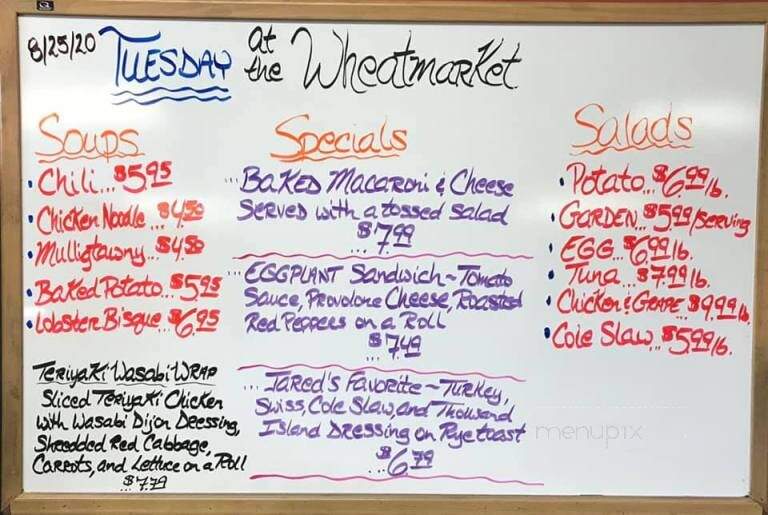 8/25/20 TUESDAY at the Wheatmarket
Soups
• Chili...$5.95
• Chicken Noodle...$4.50
• Mulligtawny...$4.50
• Baked Potato...$5.95
• Lobster Bisque...$6.95
Teriyaki Wasabi Wrap
Sliced Teriyaki Chicken
with Wasabi Dijon Dressing,
Shredded Red Cabbage,
Carrots, and Lettuce on a Roll
...$7.79
Specials
...Baked Macaroni & Cheese
Served with a tossed salad
...$7.99
...Eggplant Sandwich~Tomato
Sauce, Provolone Cheese, Roasted
Red Peppers on a Roll
...$7.49
...Jared's Favorite~Turkey,
Swiss, Cole Slaw, and Thousand
Island Dressing on Rye toast
...$6.79
Salads
• Potato...$6.99 lb.
• Garden...$5.99/serving
• Egg...$6.99 lb.
• Tuna...$7.99 lb.
• Chicken & Grape...$9.99 lb.
• Cole Slaw...$5.99 lb.
menupix